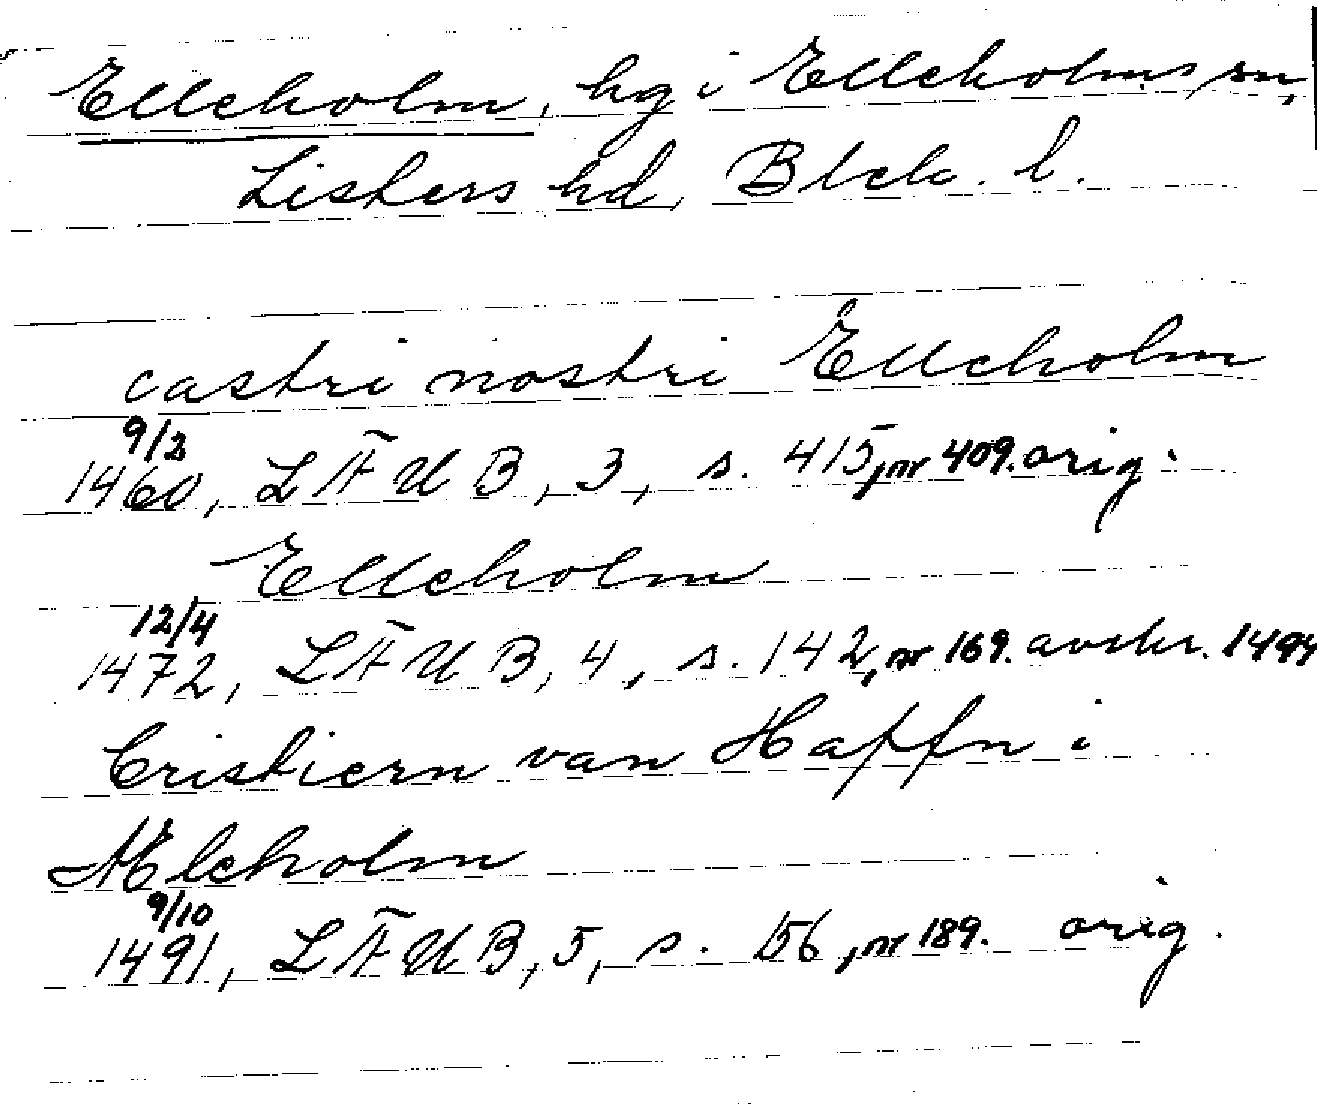 Elleholm, hg i Elleholms sn,
Listers hd, Blek. l.
castri nostri Elleholm
9/2
1460, LÄUB, 3, s. 415, nr 409. orig.
Elleholm
12/4
1472, LÄUB, 4, s. 142, nr 169. avskr. 1494
Cristiern van Haffn i
Æleholm
9/10
1491, LÄUB, 5, s. 156, nr 189. orig.